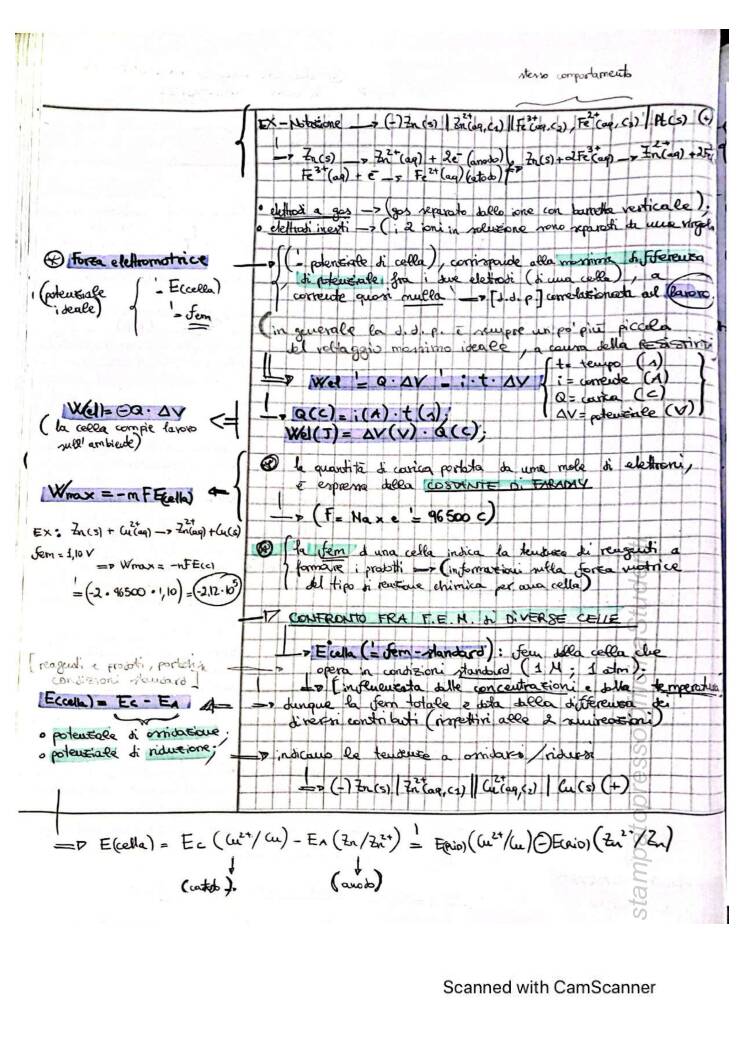 stesso comportamento
EX-Notazione → (-) Zn(s) || Zn²⁺(aq,c₁) || Fe³⁺(aq,c₂), Fe²⁺(aq,c₃) | Pt(s) (+)
→ Zn(s) → Zn²⁺(aq) + 2e⁻ (anodo) Zn(s) + 2Fe³⁺(aq) → Zn²⁺(aq) + 2Fe
Fe³⁺(aq) + e⁻ → Fe²⁺(aq) (catodo)
• elettrodi a gas → (gas separato dallo ione con barretta verticale);
• elettrodi inerti → (i 2 ioni in soluzione sono separati da una virgol
⊛ Forza elettromotrice
(potenziale ideale)
= E(cella)
= fem
(= potenziale di cella), corrisponde alla massima differenza
di potenziale fra i due elettrodi (di una cella), a
corrente quasi nulla → [d.d.p.] correlazionata al lavoro.
(in generale la d.d.p. è sempre un po' più piccola
del voltaggio massimo ideale, a causa della
⇒ Wel = Q · ΔV = i · t · ΔV
t = tempo (s)
i = corrente (A)
Q = carica (C)
ΔV = potenziale (V)
Wel = ⊖Q · ΔV
(la cella compie lavoro
sull'ambiente)
→ Q(C) = i(A) · t(s);
Wel(J) = ΔV(V) · Q(C);
⊛ la quantità di carica portata da una mole di elettroni,
è espressa dalla COSTANTE DI FARADAY
→ (F = Na x e = 96500 C)
Wmax = -nFE(cella)
EX: Zn(s) + Cu²⁺(aq) → Zn²⁺(aq) + Cu(s)
fem = 1,10 V
⇒ Wmax = -nFE(c)
= (-2 · 96500 · 1,10) = -2,12 · 10⁵
⊛ la fem di una cella indica la tendenza dei reagenti a
formare i prodotti → (informazioni sulla forza motrice
del tipo di reazione chimica per ana cella)
→ CONFRONTO FRA F.E.M. di DIVERSE CELLE
→ E°cella (= fem-standard): fem della cella che
opera in condizioni standard (1 M; 1 atm),
[reagenti e prodotti,
condizioni standard]
→ [influenzata dalle concentrazioni e dalla temperatura
E(cella) = Ec - EA
→ dunque la fem totale è data dalla differenza dei
diversi contributi (rispettivi alle 2 semireazioni)
• potenziale di ossidazione;
• potenziale di riduzione;
→ indicano le tendenze a ossidarsi/ridursi
→ (-) Zn(s) | Zn²⁺(aq,c₁) || Cu²⁺(aq,c₂) | Cu(s) (+)
⇒ E(cella) = Ec (Cu²⁺/Cu) - EA (Zn/Zn²⁺) = E(RID) (Cu²⁺/Cu) ⊖ E(RID) (Zn²⁺/Zn)
(catodo). (anodo)
Scanned with CamScanner